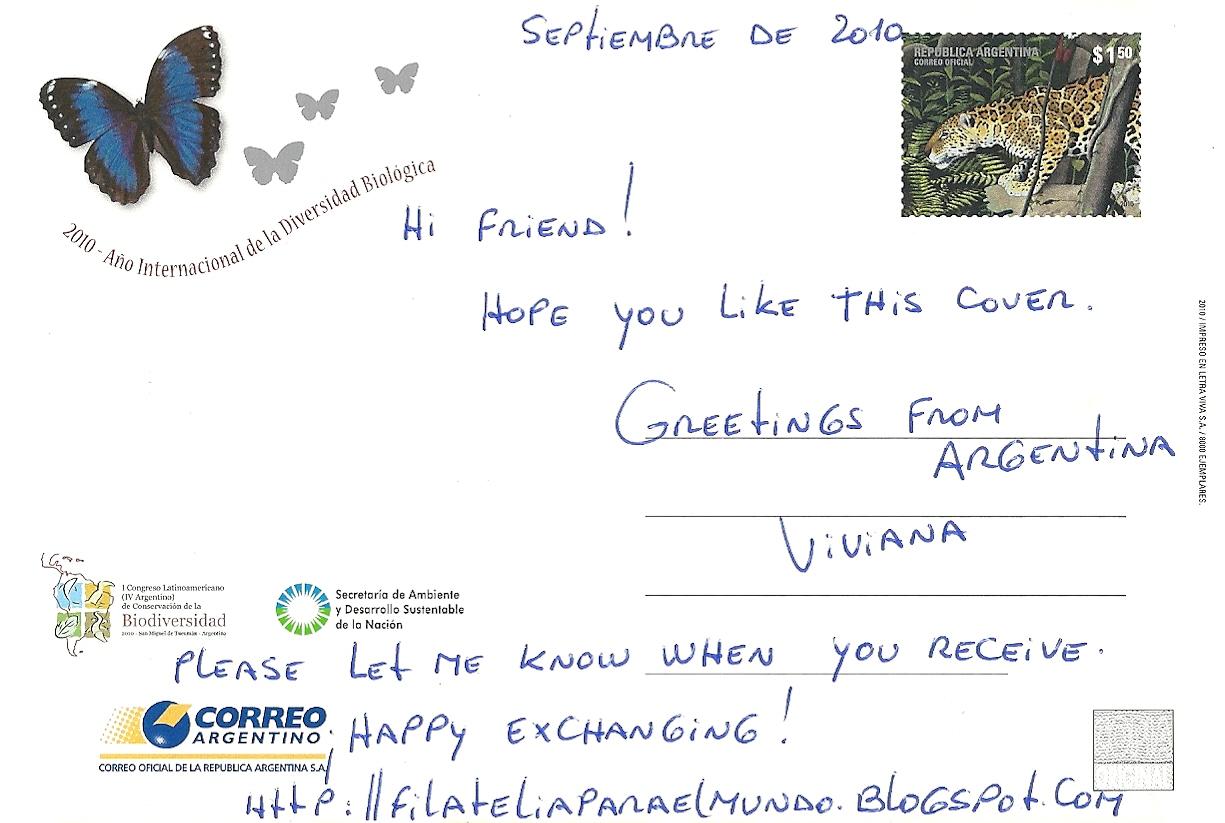 SEPTIEMBRE DE 2010
REPÚBLICA ARGENTINA
CORREO OFICIAL
$1 50
2010
2010 - Año Internacional de la Diversidad Biológica
Hi FRiEND!
HOPE YOU LIKE THIS COVER.
GREETINGS FROM
ARGENTINA
ViViANA
2010 / IMPRESO EN LETRA VIVA S.A. / 8000 EJEMPLARES.
I Congreso Latinoamericano
(IV Argentino)
de Conservación de la
Biodiversidad
2010 - San Miguel de Tucumán - Argentina
Secretaría de Ambiente
y Desarrollo Sustentable
de la Nación
PLEASE LET ME KNOW WHEN YOU RECEIVE.
CORREO
ARGENTINO
CORREO OFICIAL DE LA REPUBLICA ARGENTINA S.A.
¡HAPPY EXCHANGING!
HTTP://FILATELIAPARAELMUNDO.BLOGSPOT.COM